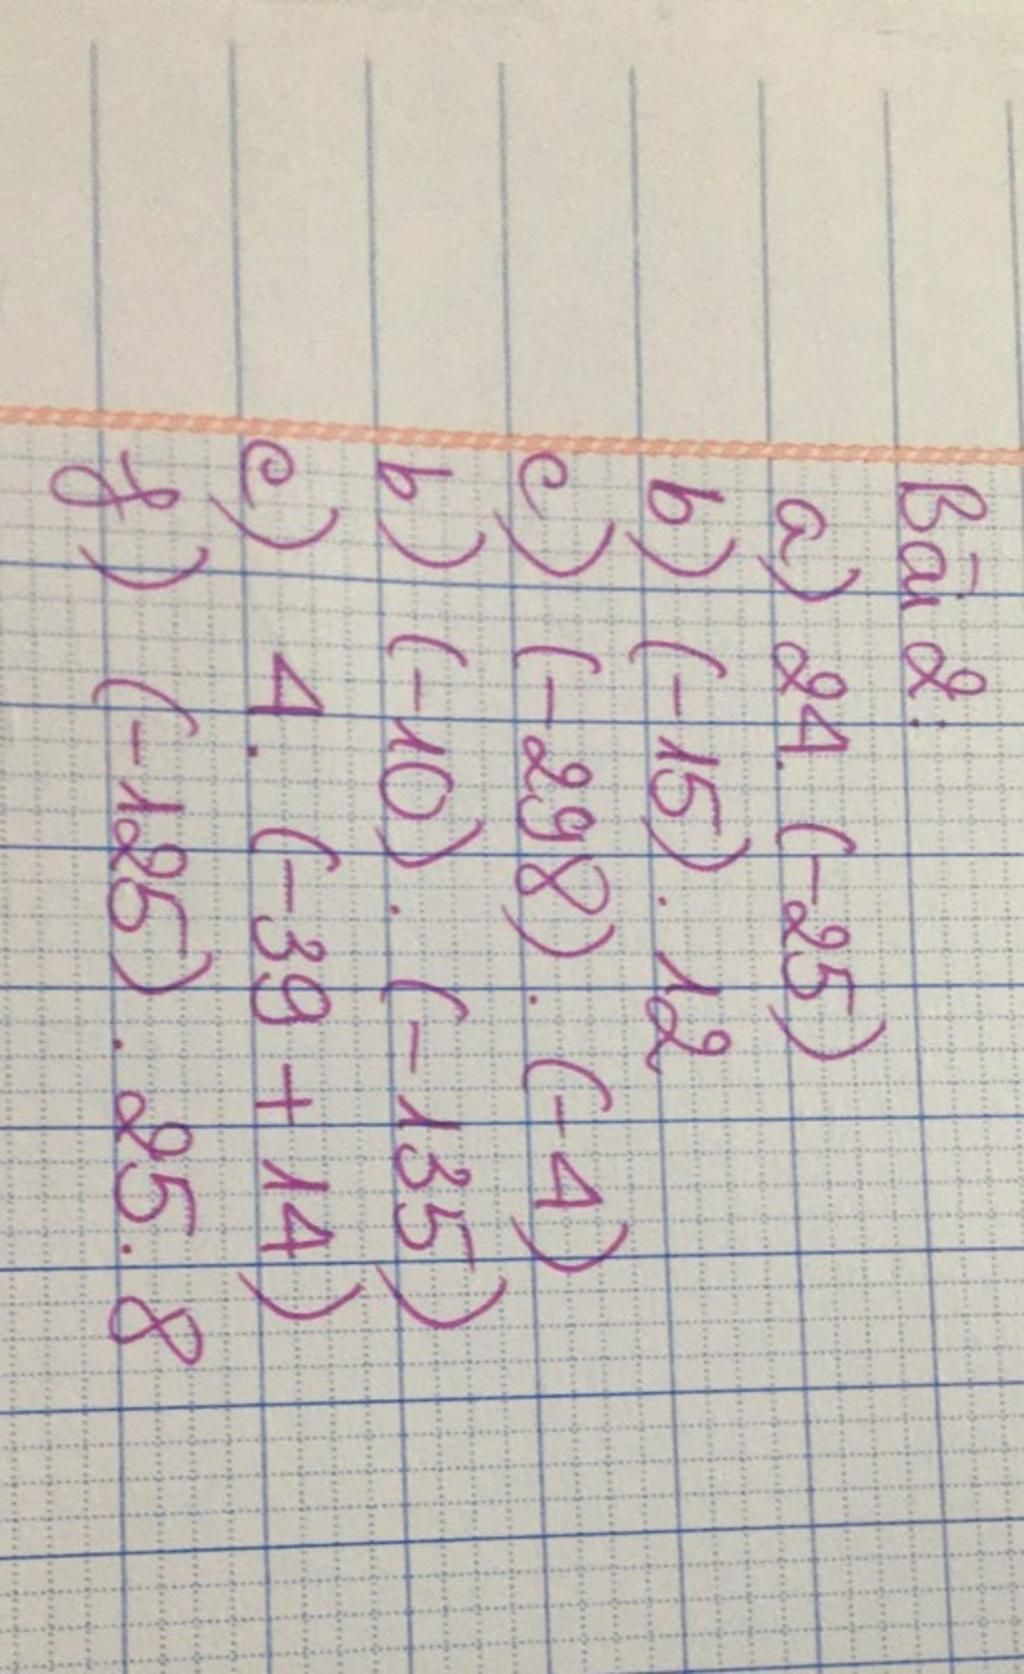 Bài 2:
a) 24. (-25)
b) (-15). 12
c) (-298). (-4)
b) (-10). (-135)
e) 4. (-39 + 14)
f) (-125). 25. 8